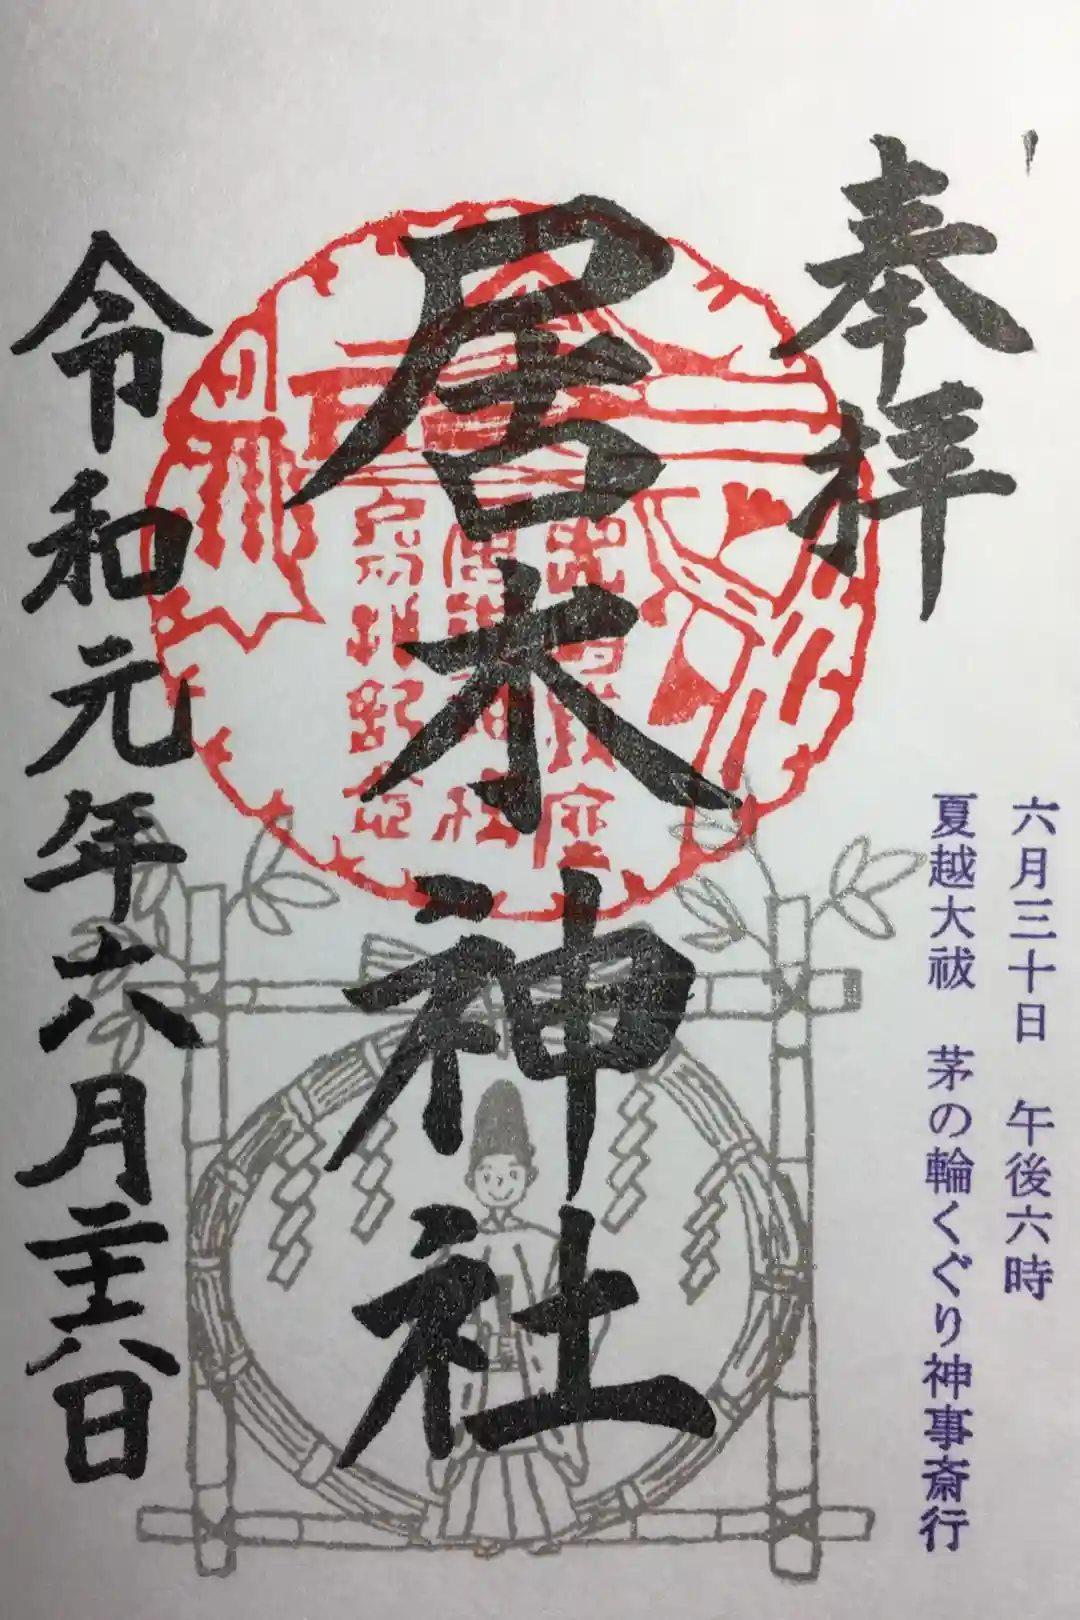 奉拝
六月三十日 午後六時
夏越大祓 茅の輪くぐり神事斎行
居木神社
令和元年六月二十八日